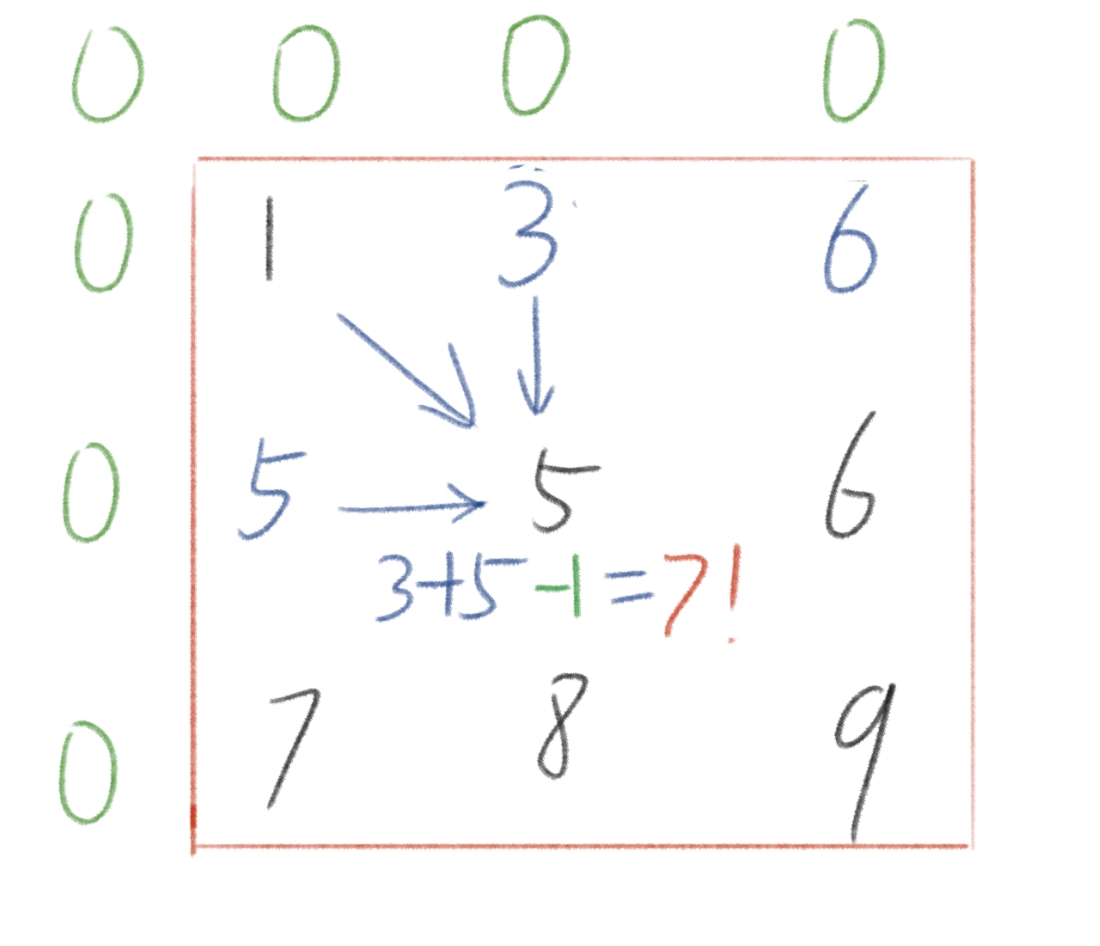 0 0 0 0
0 1 3 6
0 5 5 6
3+5-1=7!
0 7 8 9